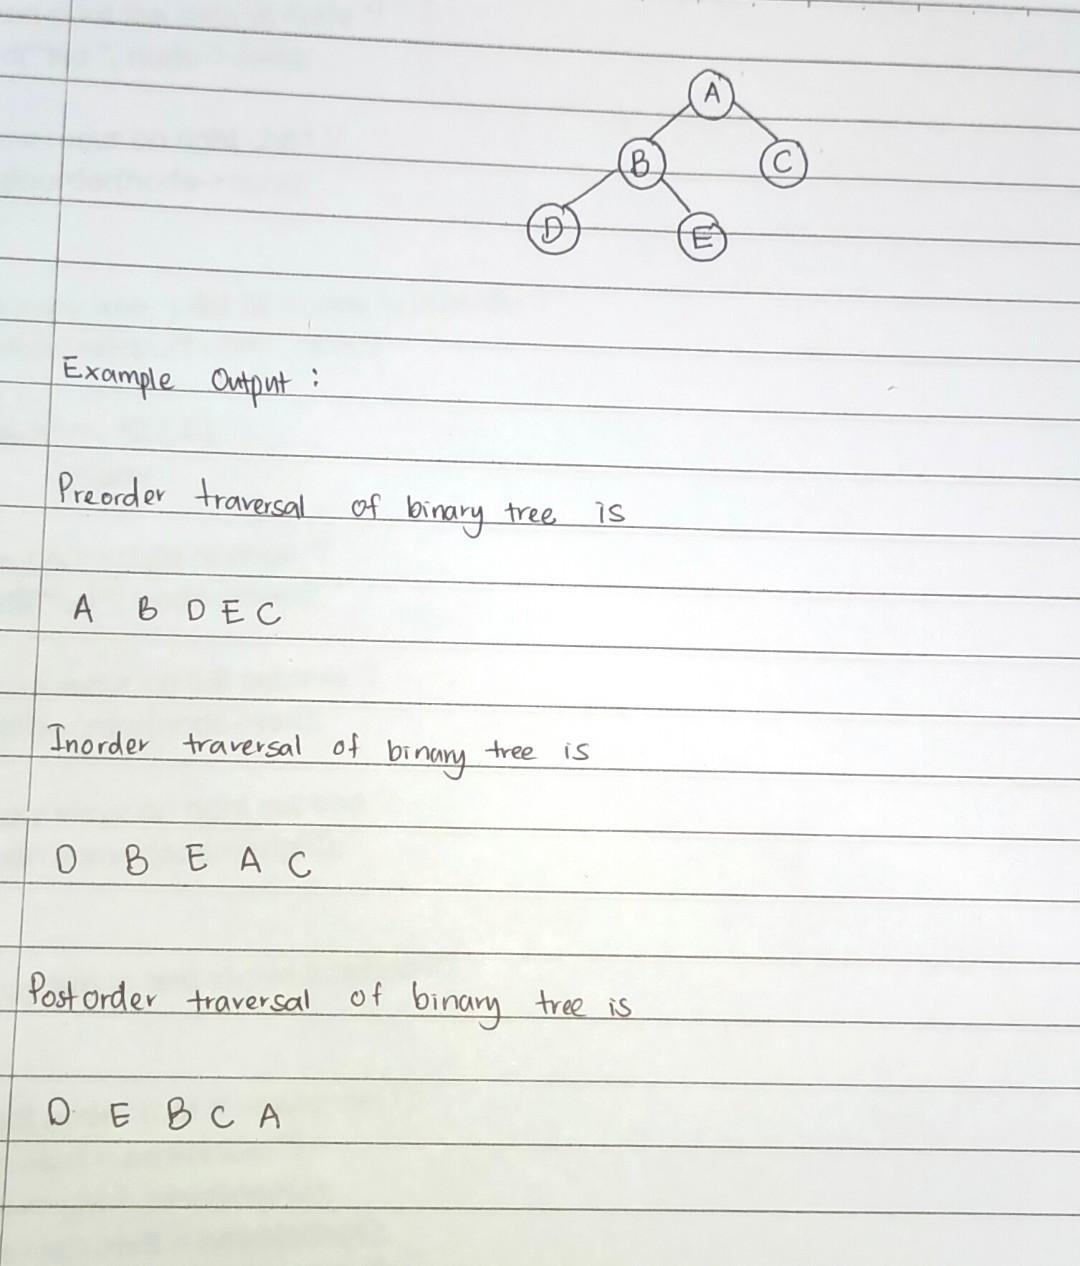 A
B C
D E
Example Output :
Preorder traversal of binary tree is
A B D E C
Inorder traversal of binary tree is
D B E A C
Postorder traversal of binary tree is
D E B C A